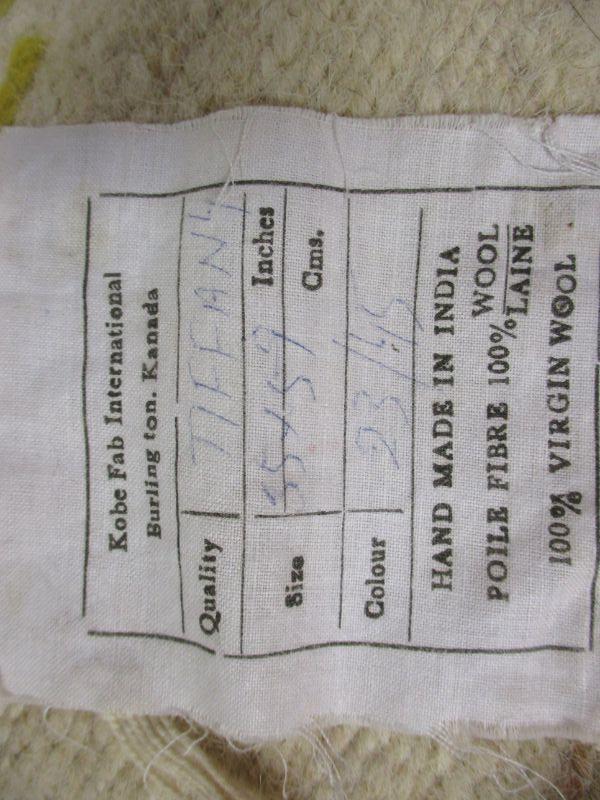 Kobe Fab International
Burling ton. Kanada
Quality TIFFANY
Size 55x57 Inches
Cms.
Colour 23/45
HAND MADE IN INDIA
POILE FIBRE 100% WOOL
LAINE
100% VIRGIN WOOL